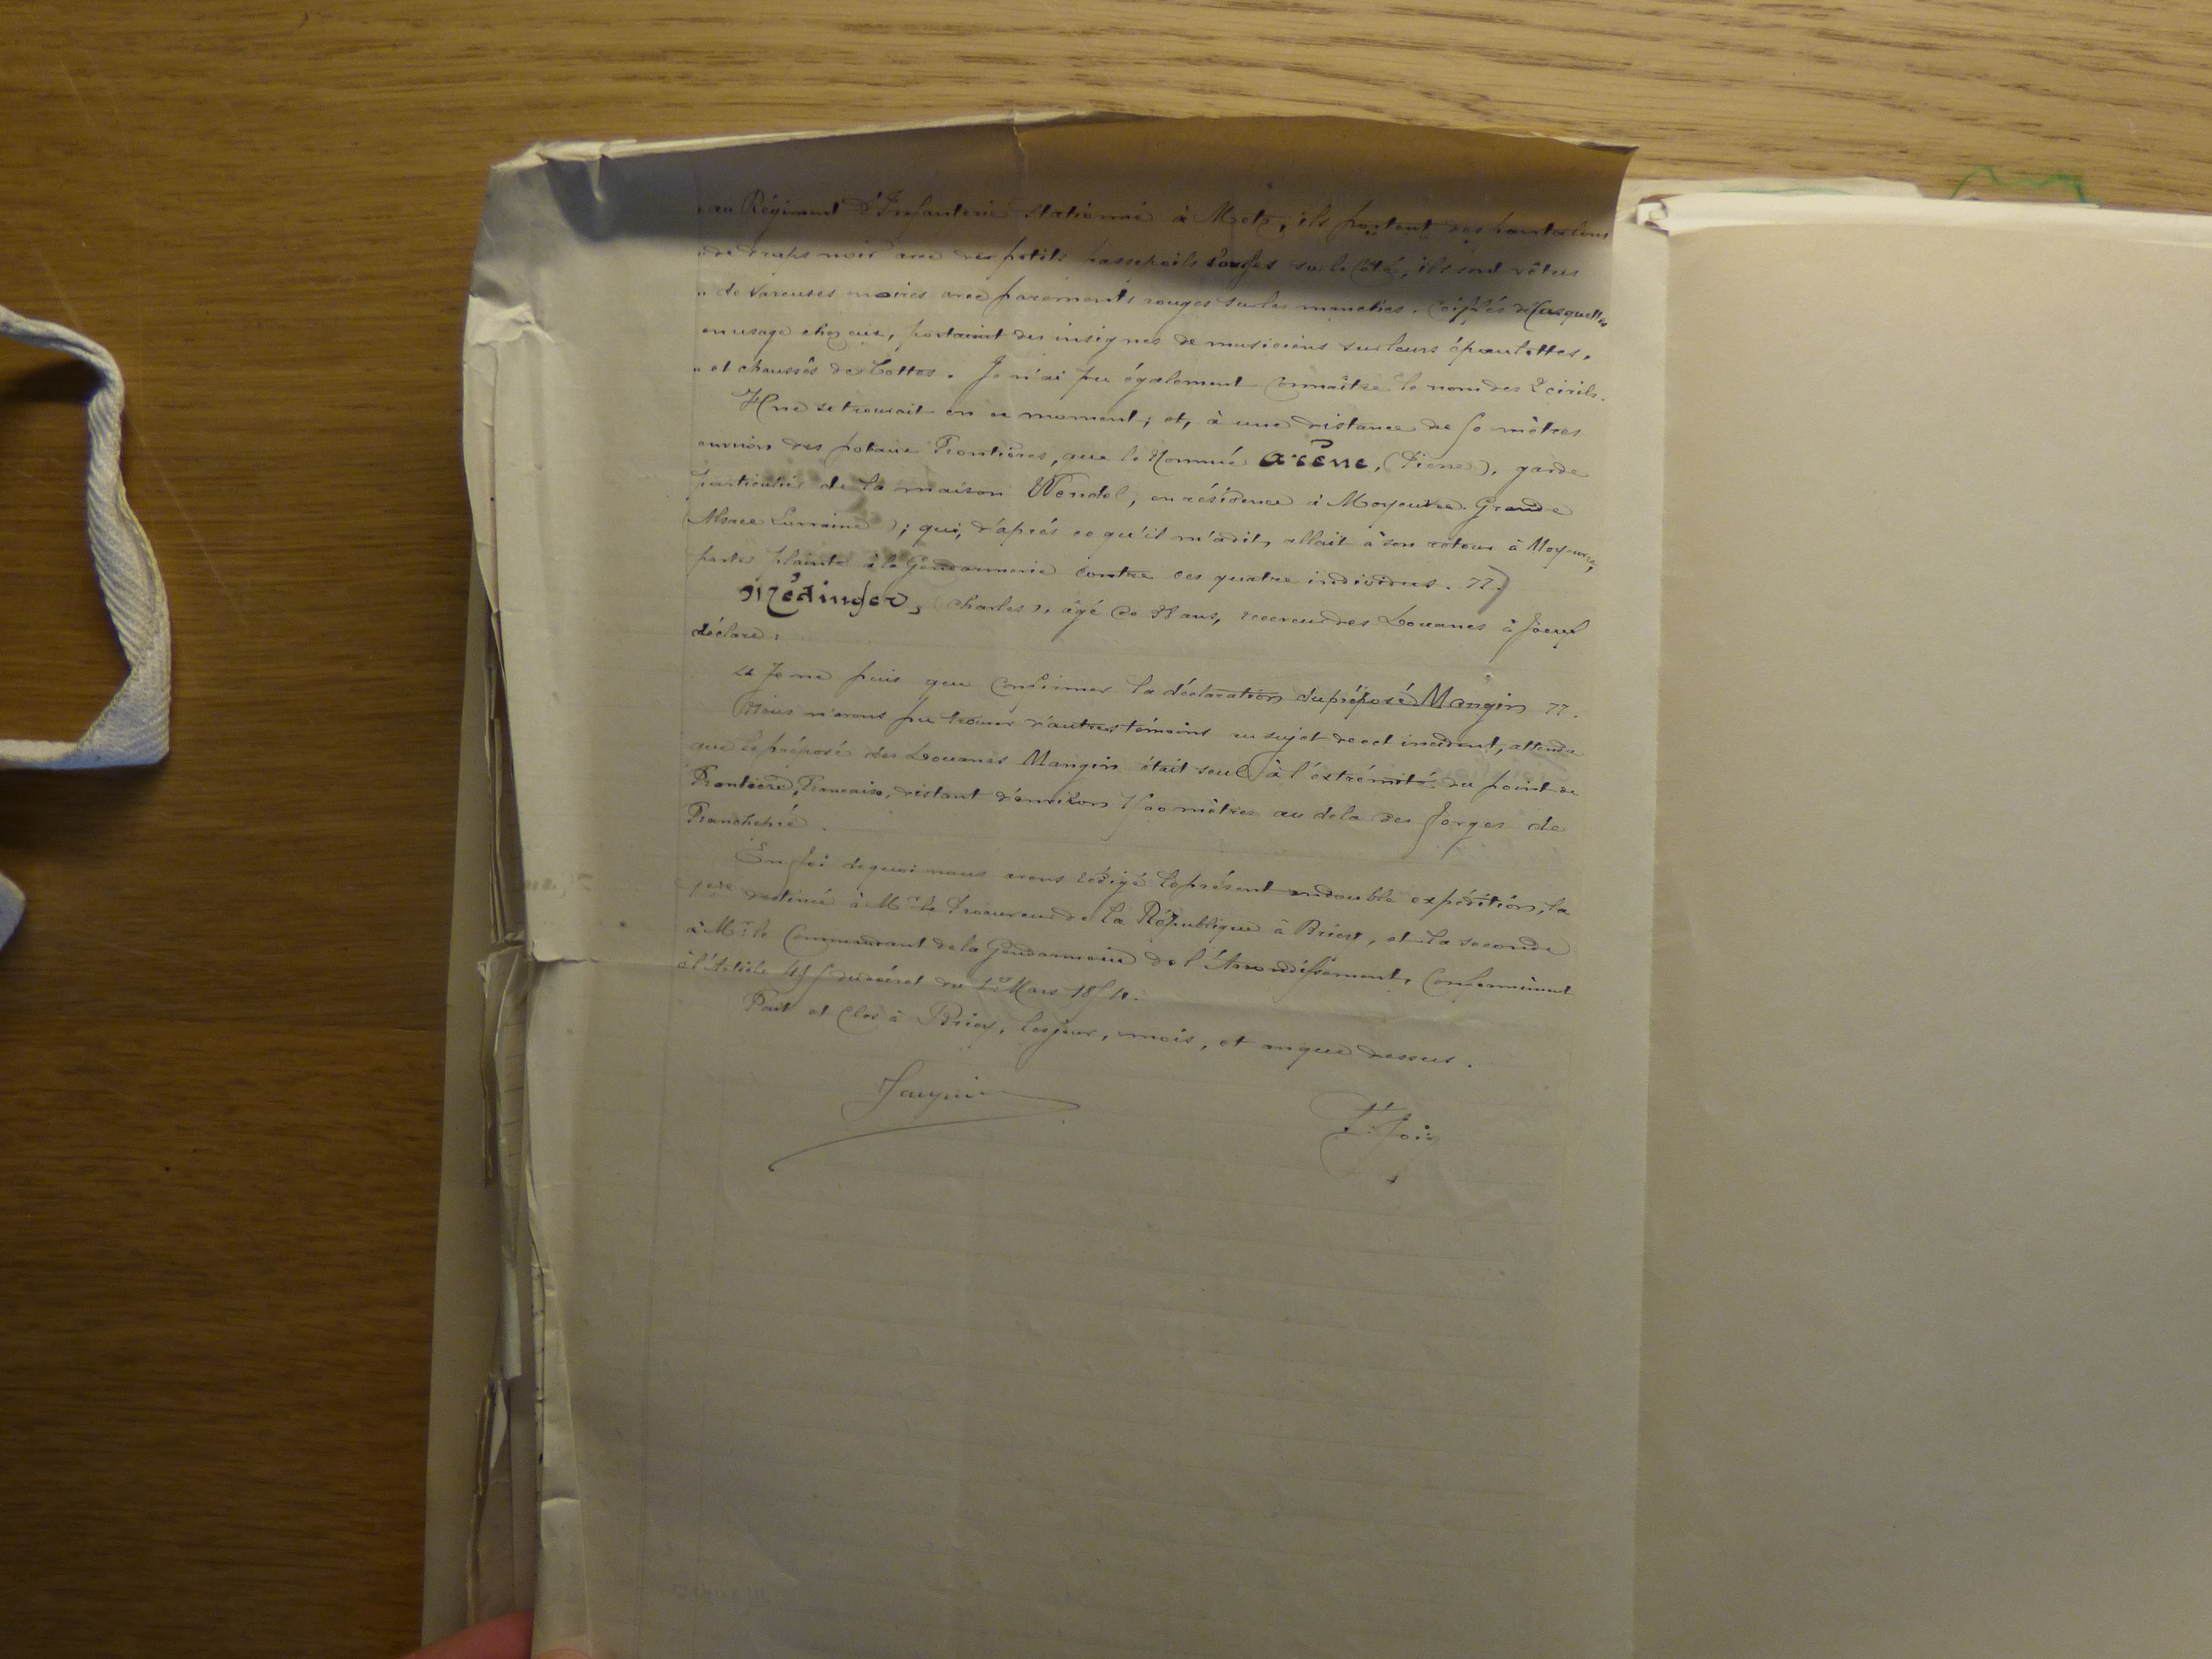 " au Régiment d'Infanterie stationné à Metz, ils portent des pantalons
" de draps noir avec des petits passepoils rouges sur le côté, ils sont vêtus
" de vareuses noires avec parements rouges sur les manches. Coiffés de casquettes
en usage chez eux, portaient des insignes de musiciens sur leurs épaulettes,
" et chaussés de bottes. Je n'ai pu également connaître le nom des 2 civils.
Il ne se trouvait en ce moment; et, à une distance de 50 mètres
environ des poteaux Frontières, que le Nommé Arène, (Pierre), garde
particulier de la maison Wendel, en résidence à Moyeuvre-Grande
(Alsace Lorraine); qui, d'après ce qu'il m'a dit, allait à son retour à Moyeuvre,
porter plainte à la Gendarmerie contre ces quatre individus. "
Médinger, (Charles), âgé de ans, receveur des Douanes à Joeuf
déclare:
" Je ne puis que confirmer la déclaration du préposé Mangin ".
Nous n'avons pu trouver d'autres témoins au sujet de cet incident, attendu
que le préposé des Douanes Mangin était seul à l'extrémité du point de
Frontière Française, distant d'environ 1500 mètres au dela des Forges de
Franchepré.
En foi de quoi nous avons rédigé le présent en double expédition, la
1ère destinée à Mr le Procureur de la République à Briey, et la seconde
à Mr le Commandant de la Gendarmerie de l'Arrondissement, Conformément
à l'Article 495 du décret du 1er Mars 1854.
Fait et Clos à Briey, les jour, mois, et an que dessus.